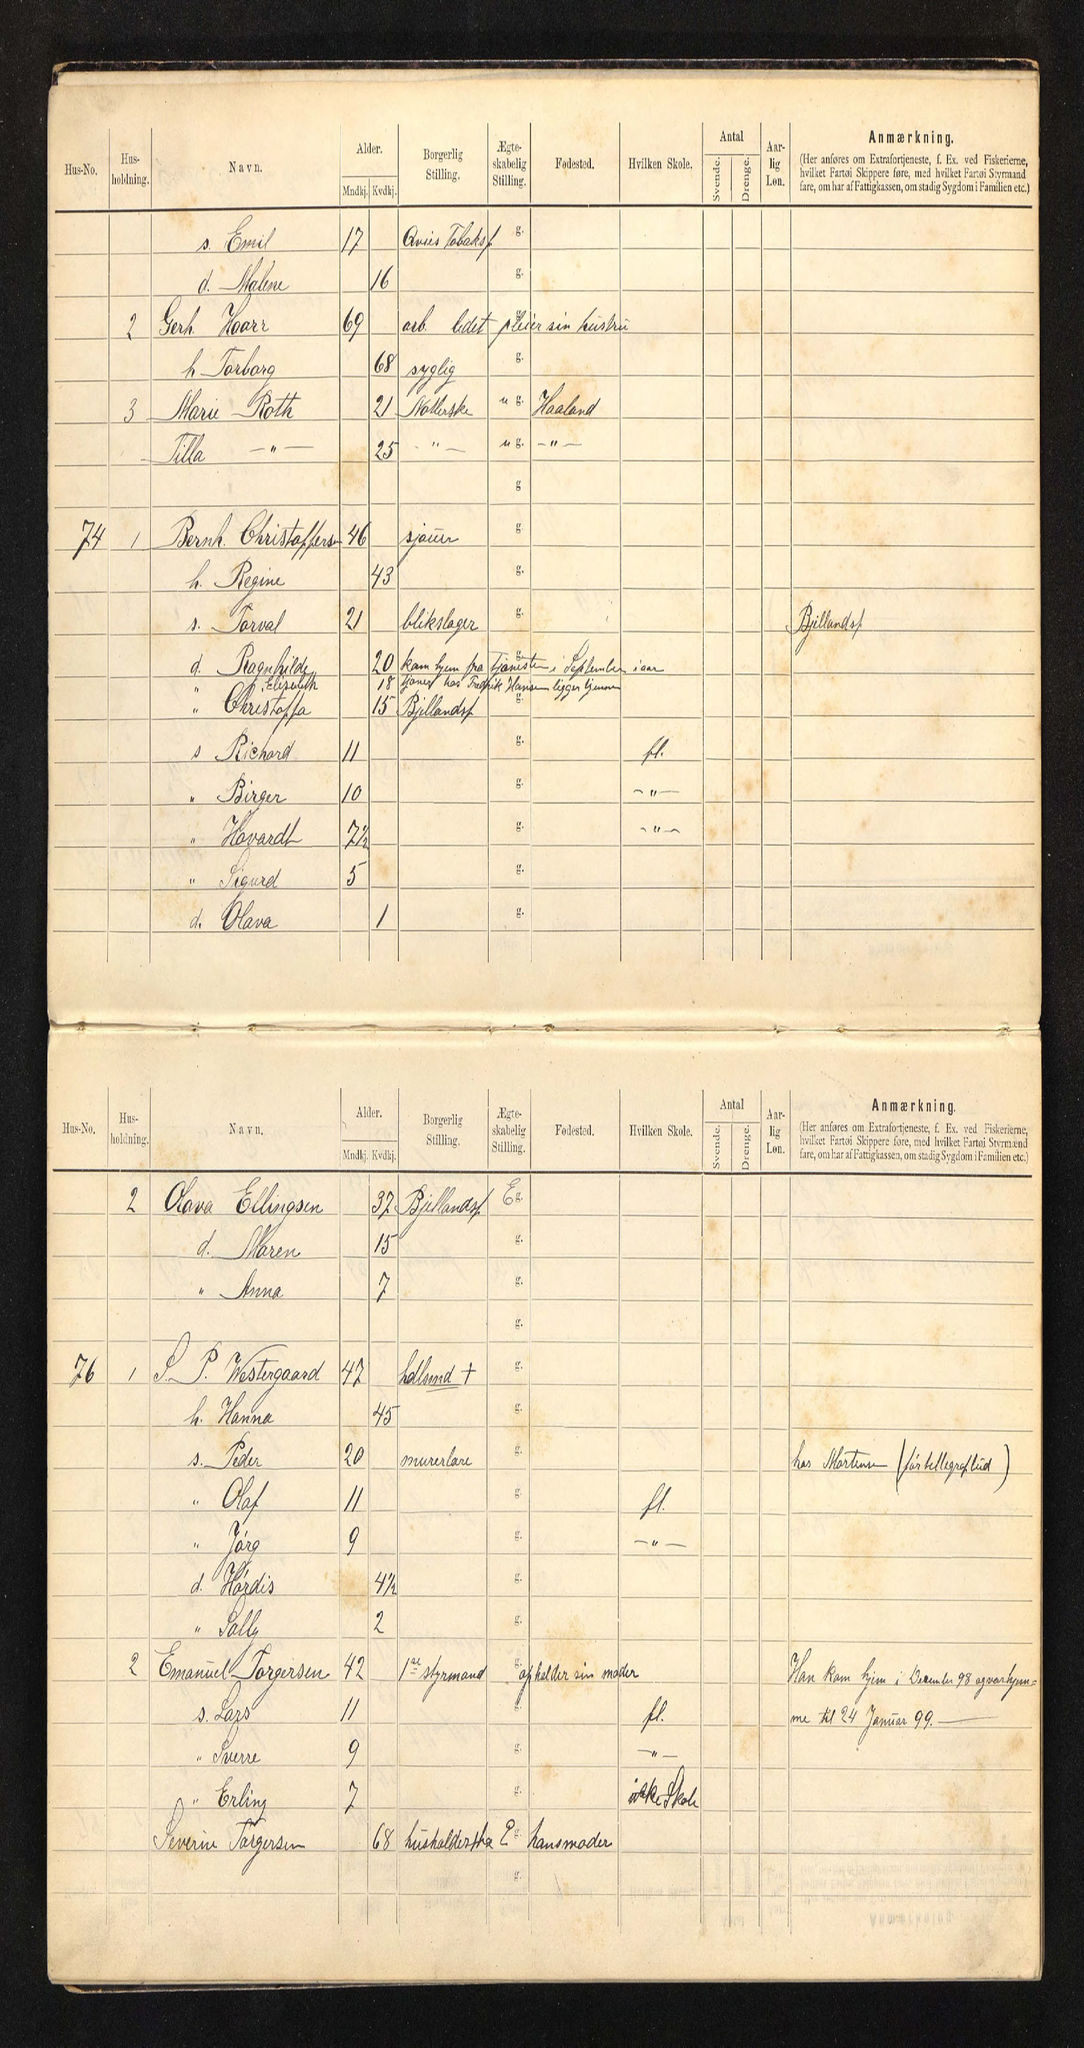 Hus-No. Hus-holdning. Navn. Alder. Mndkj. Kvdkj. Borgerlig Stilling. Ægte-skabelig Stilling. Fødested. Hvilken Skole. Antal Svende. Drenge. Aar-lig Løn. Anmærkning.
(Her anføres om Extrafortjeneste, f. Ex. ved Fiskerierne,
hvilket Fartøi Skippere føre, med hvilket Fartøi Styrmænd
fare, om har af Fattigkassen, om stadig Sygdom i Familien etc.)
s. Emil 17 Tobaksf g.
d. Malene 16 g.
2 Gerh. Haarr 69 arb. lidet pleier sin hustru
h Torborg 68 syglig g.
3 Marie Roth 21 u g. Haaland
Tilla —"— 25 —"— u g. —"—
g
74 1 Bernh. Christoffersen 46 sjouer g
h. Regine 43 g.
s. Torval 21 blikslager g. Bjellandsf
d. Ragnhilde 20 kom hjem fra tjenesten i September iaar
" Elisabeth 18 tjener hos Fredrik Hansen ligger hjemme
" Christoffa 15 Bjellandsf g.
s Richard 11 g. fl.
" Birger 10 g. —"—
" Havardt 7½ g. —"—
" Sigurd 5 g.
d. Olava 1 g.
Hus-No. Hus-holdning. Navn. Alder. Mndkj. Kvdkj. Borgerlig Stilling. Ægte-skabelig Stilling. Fødested. Hvilken Skole. Antal Svende. Drenge. Aar-lig Løn. Anmærkning.
(Her anføres om Extrafortjeneste, f. Ex. ved Fiskerierne,
hvilket Fartøi Skippere føre, med hvilket Fartøi Styrmænd
fare, om har af Fattigkassen, om stadig Sygdom i Familien etc.)
2 Olava Ellingsen 37 Bjellandsf E g.
d. Maren 15 g.
" Anna 7 g.
g.
76 1 S. P. Westergaard 47 hdlsmd + g.
h. Hanna 45 g.
s. Peder 20 murerlære g. hos Mortensen (før tellegrafbud)
" Olaf 11 g. fl.
" Jørg 9 g. —"—
d. Hørdis 4½ g.
" Sally 2 g.
2 Emanuel Torgersen 42 1ste styrmand opholder sin moder Han kom hjem i December 98 og var hjem=
s. Lars 11 g. fl. me til 24 Januar 99.—
" Sverre 9 g. —"—
" Erling 7 g. ikke Skole
Severine Torgersen 68 husholderska E g. hans moder
g.